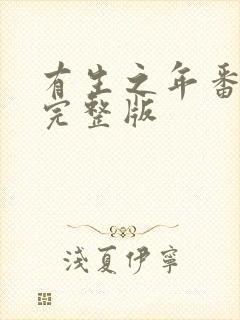 有生之年番
完整版
浅夏伊宁